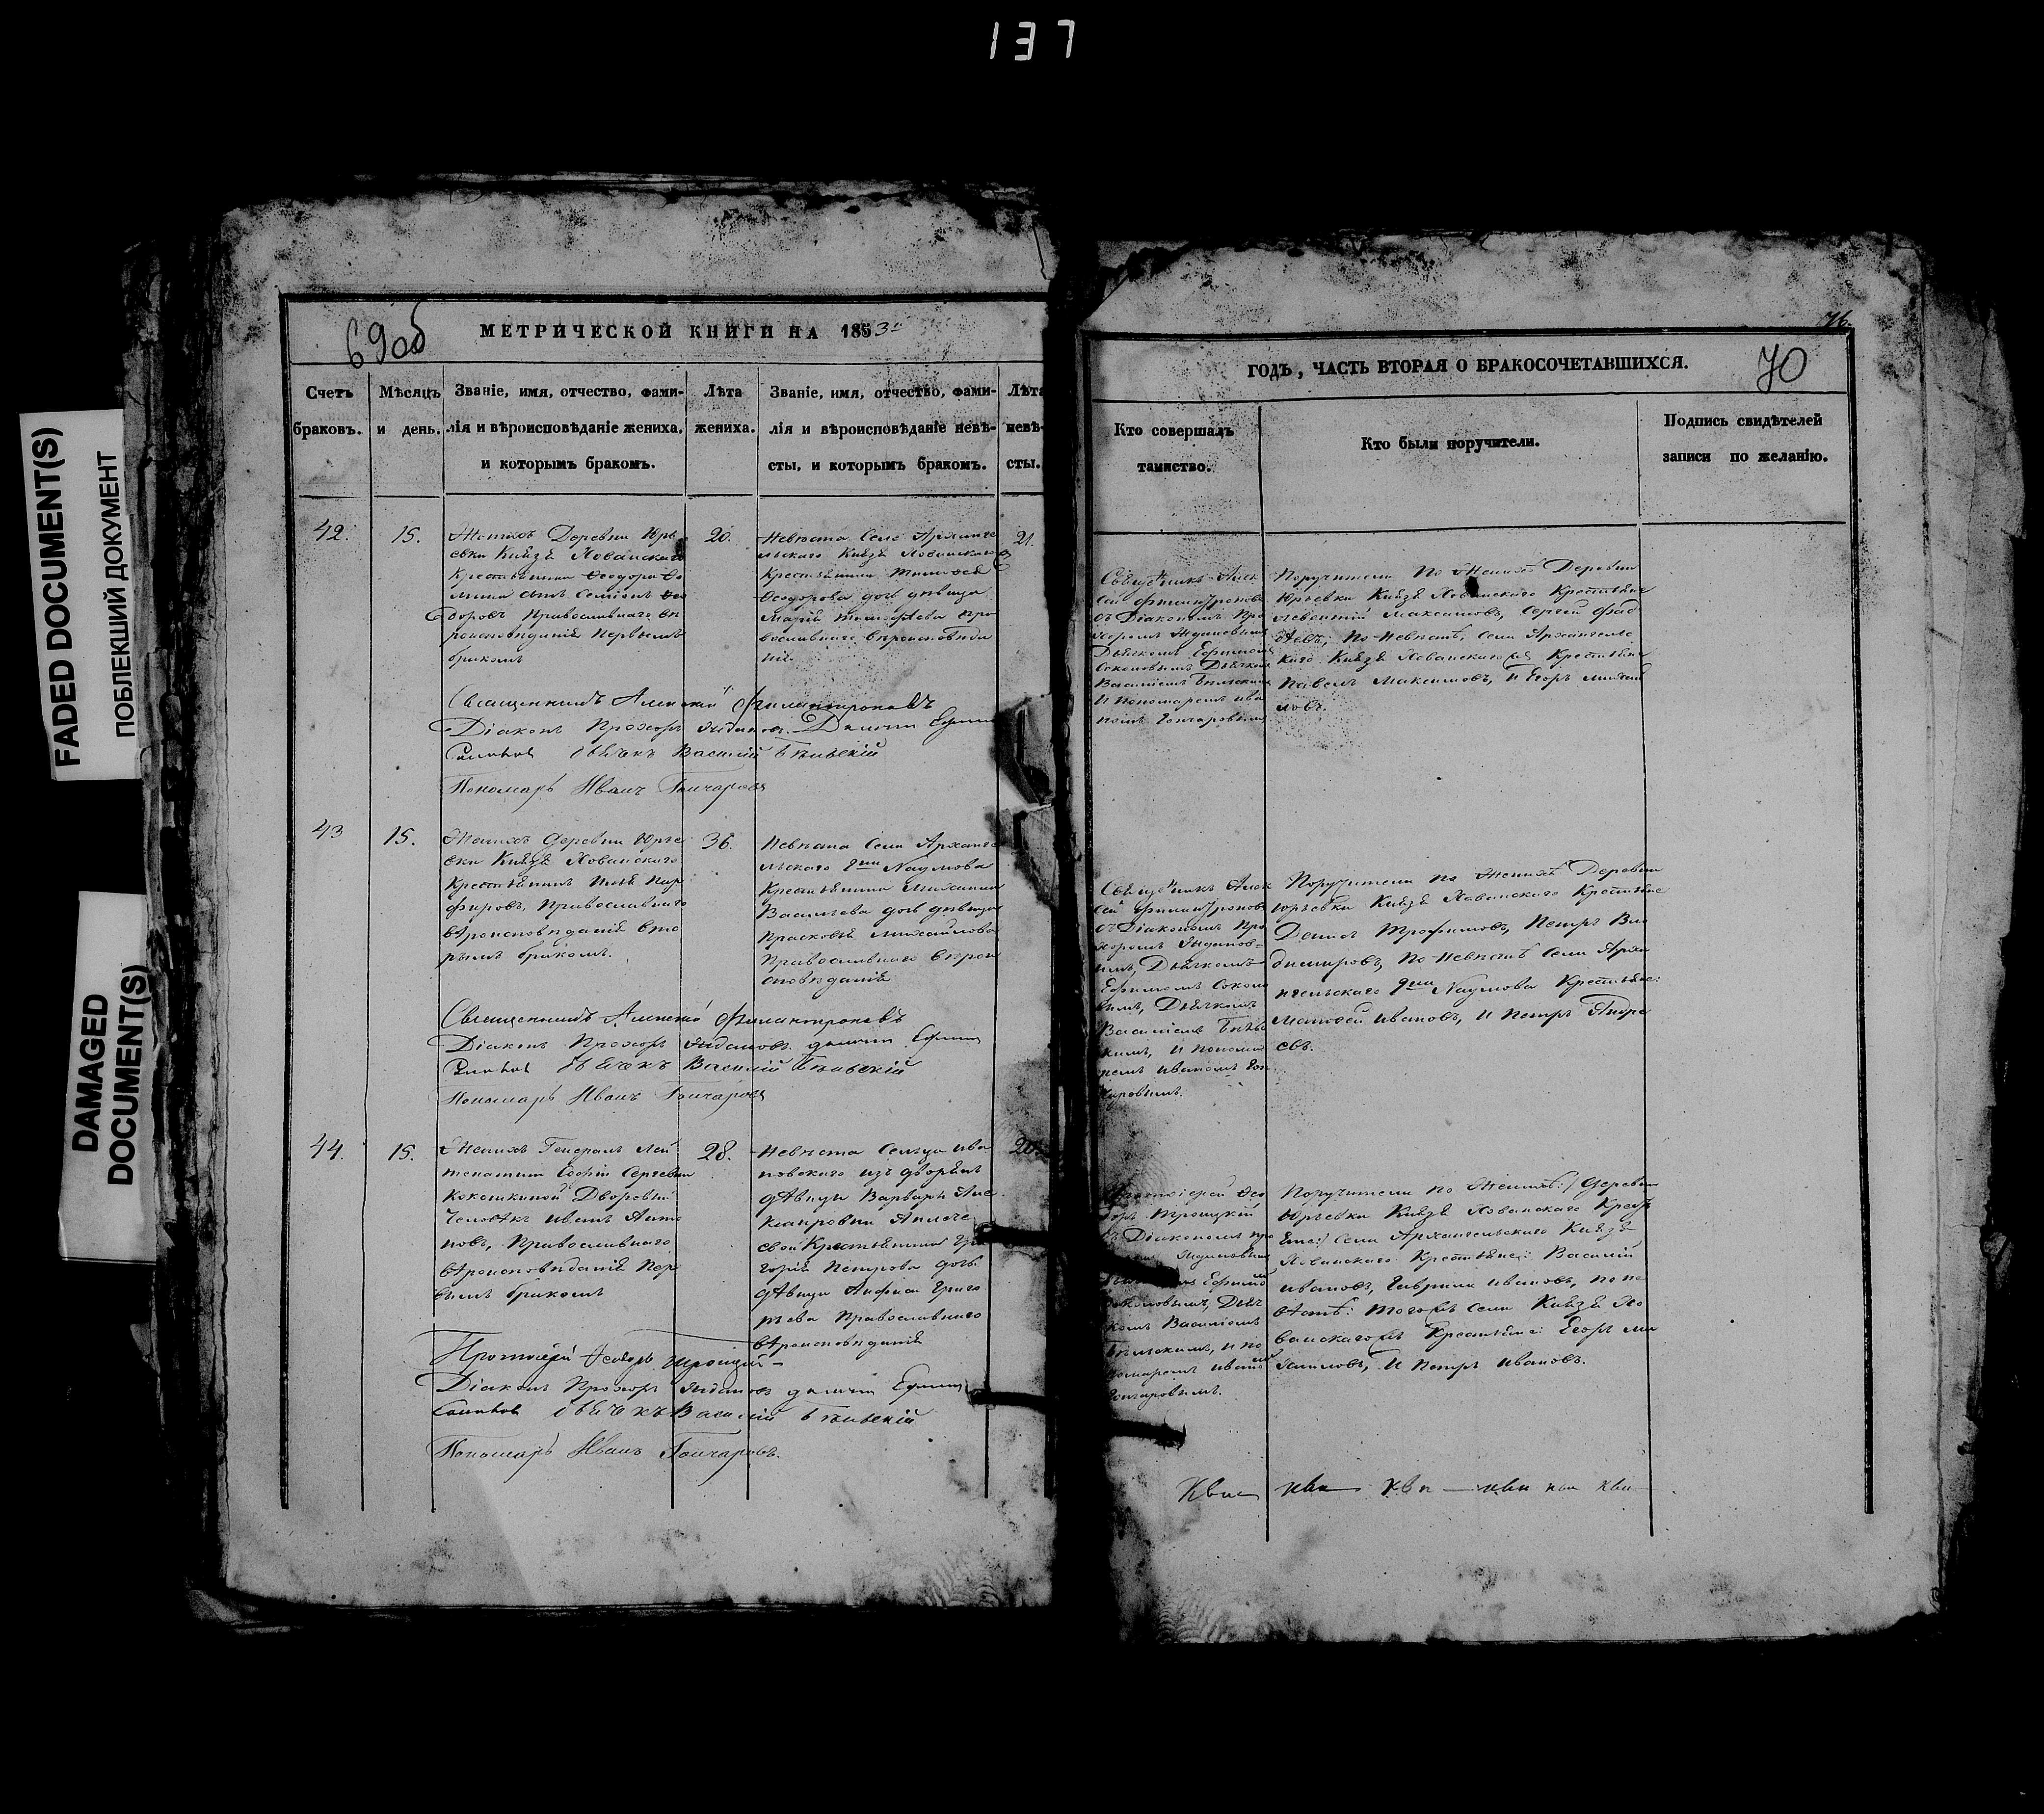 137
FADED DOCUMENT(S)
ПОБЛЕКШИЙ ДОКУМЕНТ
DAMAGED
DOCUMENT(S)
69об
МЕТРИЧЕСКОЙ КНИГИ НА 1853
Счетъ
браковъ.
Мѣсяцъ
и день.
Званіе, имя, отчество, фами-
лія и вѣроисповѣданіе жениха,
и которымъ бракомъ.
Лѣта
жениха.
Званіе, имя, отчество, фами-
лія и вѣроисповѣданіе невѣ-
сты, и которымъ бракомъ.
Лѣта
невѣ-
сты.
42.
15.
Женихъ Деревни Юрь
евки Князя Хованскаго
Крестьянина Ѳеодора
сынъ Семіонъ Ѳео
доровъ Православнаго вѣ
роисповѣданія Первымъ
бракомъ
20.
Невѣста Села Арханге
льскаго Князя Хованскаго
Крестьянина
Ѳеодорова дочь дѣвица
Марія Пра
вославнаго вѣроисповѣда
нія
21.
Священникъ Алексій Филантроповъ
Діаконъ Прохоръ Ждановъ. Дьячекъ Ефимъ
Соколовъ Дьячекъ Василій Бѣльскій
Пономарь Иванъ Гончаровъ
43
15.
Женихъ Деревни Юрье
вки Князя Хованскаго
Крестьянинъ Илья Пар
фировъ, Православнаго
вѣроисповѣданія вто
рымъ бракомъ.
36.
Невѣста Села Арханге
льскаго Гна Наумова
Крестьянина Михаила
Васильева дочь дѣвица
Прасковья Михайлова
Православнаго вѣрои
сповѣданія
Священникъ Алексій Филантроповъ
Діаконъ Прохоръ Ждановъ. Дьячекъ Ефимъ
Соколовъ Дьячекъ Василій Бѣльскій
Пономарь Иванъ Гончаровъ
44.
15.
Женихъ Генералъ Лей
тенантши Софіи Сергѣевны
Кокошкиной Дворовый
Человѣкъ Иванъ Анто
новъ, Православнаго
вѣроисповѣданія Пер
вымъ бракомъ
28.
Невѣста Сельца Ива
новскаго изъ дворянъ
дѣвицы Варвары Але
ксандровны
Крестьянина Гри
горія Петрова дочь
дѣвица Анфиса Григо
рьева Православнаго
вѣроисповѣданія
20.
Протоіерей Ѳеодоръ Троицкій
Діаконъ Прохоръ Ждановъ Дьячекъ Ефимъ
Соколовъ Дьячекъ Василій Бѣльскій
Пономарь Иванъ Гончаровъ.
76.
ГОДЪ, ЧАСТЬ ВТОРАЯ О БРАКОСОЧЕТАВШИХСЯ.
70
Кто совершалъ
таинство.
Кто были поручители.
Подпись свидѣтелей
записи по желанію.
Священникъ Алек
сій Филантроповъ
съ Діакономъ Про
хоромъ Ждановымъ
Дьячкомъ Ефимомъ
Соколовымъ Дьячком
Василіемъ Бѣльскимъ
и пономаремъ Ива
номъ Гончаровымъ
Поручители По Женихѣ Деревни
Юрьевки Князя Хованскаго Крестьяне
Максимовъ, Сергей Фад
ѣевъ; По Невѣстѣ, Села Архангельс
каго Князя Хованскаго Крестьяне
Павелъ Максимовъ, и Егоръ Михай
ловъ.
Священникъ Алек
сій Филантроповъ
съ Діакономъ Про
хоромъ Жданов-
ымъ, Дьячкомъ
Ефимомъ Соколо
вымъ, Дьячкомъ
Василіемъ Бѣльс
кимъ, и понома
ремъ Иваномъ Гон
чаровымъ.
Поручители по Женихѣ Деревни
Юрьевки Князя Хованскаго Крестьяне
Денисъ Трофимовъ, Петръ Вла
димировъ, по Невѣстѣ Села Арха
нгельскаго Гна Наумова Крестьяне:
Матвей Ивановъ, и Петръ Андре
евъ.
Протоіерей Ѳео
доръ Троицкій
съ Діакономъ Про
хоромъ Ждановымъ
Ефимомъ
Соколовымъ, Дьяч
комъ Василіемъ
Бѣльскимъ, и по
номаремъ Иваномъ
Гончаровымъ.
Поручители по Женихѣ: Деревни
Юрьевки Князя Хованскаго Крест
Села Архангельскаго Князя
Хованскаго Крестьяне: Василій
Ивановъ, Гаврила Ивановъ, по не
вѣстѣ: того же Села Князя Хо
ванскаго Крестьяне: Егоръ Ми
хайловъ, и Петръ Ивановъ.